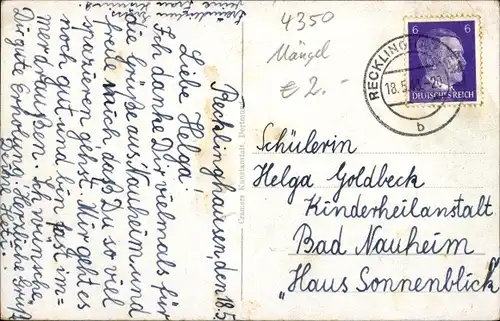 Recklinghausen, den 18.5.
Liebe Helga!
Ich danke Dir vielmals für
die Grüße aus Nauheim und
freue mich daß Du so viel
spazieren gehst. Mir geht es
noch gut und bin fast im-
mer draußen. Ich wünsche
Dir gute Erholung. Herzliche Grüße
Deine
Cramers Kunstanstalt, Dortmund
4350
Mängel
€ 2.-
RECKLING
18.5.
b
6 6
DEUTSCHES REICH
Schülerin
Helga Goldbeck
Kinderheilanstalt
Bad Nauheim
"Haus Sonnenblick"